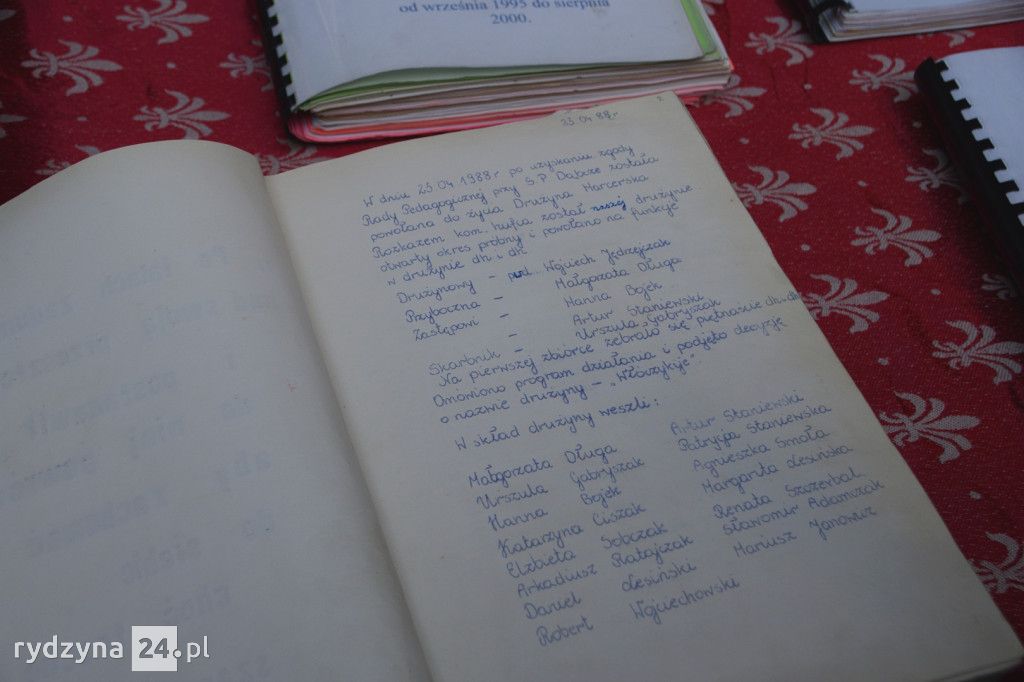 od września 1995 do sierpnia
2000.
2
23.04.88r.
W dniu 23.04.1988r po uzyskaniu zgody
Rady Pedagogicznej przy S.P. Dąbcze została
powołana do życia Drużyna Harcerska
Rozkazem kom. hufca został naszej drużynie
otwarty okres próbny i powołano na funkcje
w drużynie dh. i dh.
Drużynowy - Wojciech Jędrzejczak
Przyboczna - Małgorzata Długa
Zastępowi - Hanna Bojek
- Artur Staniewski
Skarbnik - Urszula Gabryszak
Na pierwszej zbiórce zebrało się piętnaście dh. i dh.
Omówiono program działania i podjęto decyzję
o nazwie drużyny - "Włóczykije".
W skład drużyny weszli:
Małgorzata Długa Artur Staniewski
Urszula Gabryszak Patrycja Staniewska
Hanna Bojek Agnieszka Smoła
Katarzyna Ciszak Margarita Lesińska
Elżbieta Sobczak Renata Szczerbal
Arkadiusz Ratajczak Sławomir Adamczak
Daniel Lesiński Mariusz Janowicz
Robert Wojciechowski
rydzyna 24.pl